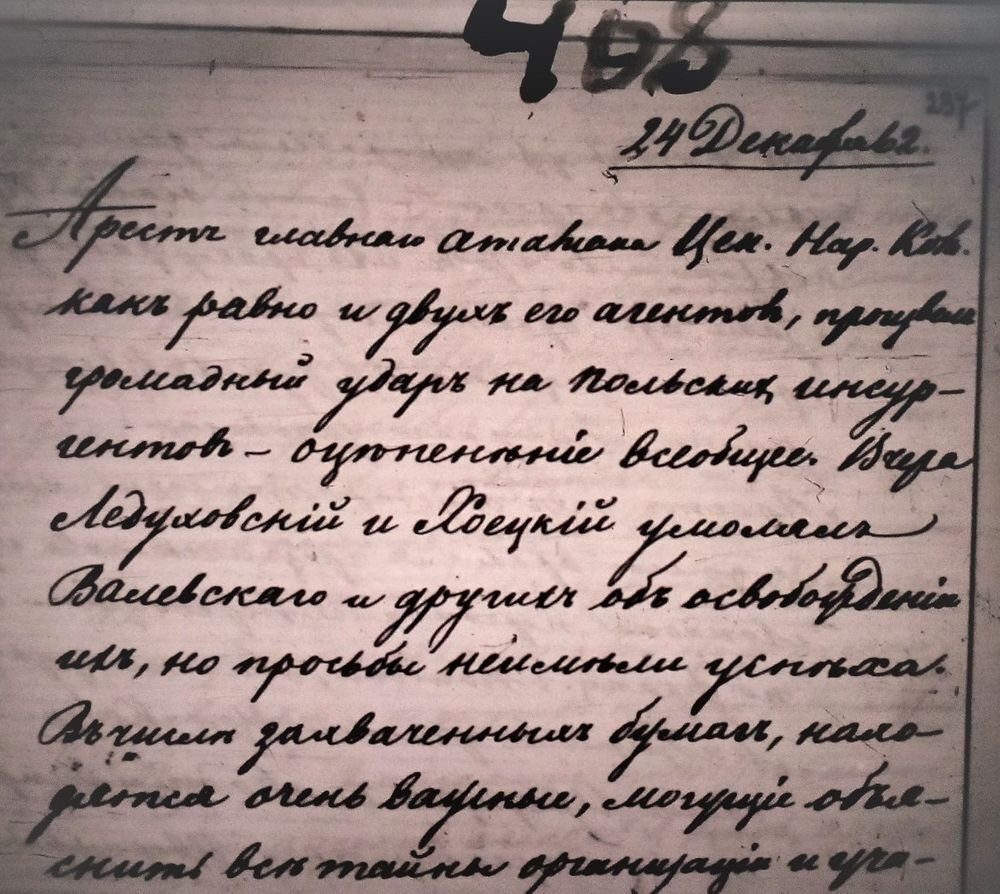 408
237
24 Декабря 62.
Арестъ главнаго атамана Цен. Нар. Ком.
какъ равно и двухъ его агентовъ, произвели
громадный ударъ на польскихъ инсур-
гентовъ – оцѣпенѣніе всеобщее. Вчера
Ледуховскій и Хоецкій умоляли
Валевскаго и другихъ объ освобожденіи
ихъ, но просьбы неимѣли успѣха.
Въ числѣ захваченныхъ бумагъ, нахо-
дятся очень важные, могущіе объя-
снить всѣ тайны организаціи и уча-